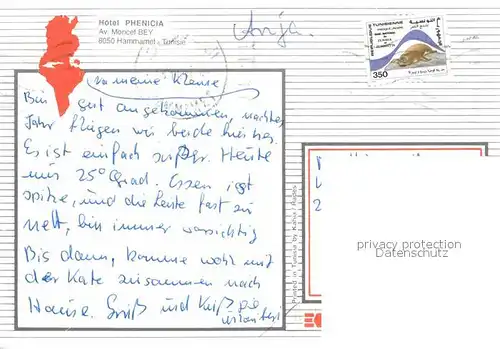 Hotel PHENICIA
Av. Moncef BEY
8050 Hammamet - Tunisie
Anja.
350
na meine Kleine
Bin gut angekommen, nächstes
Jahr fliegen wir beide hierher.
Es ist einfach super. Heute
nur 25° Grad. Essen ist
spitze, und die Leute fast zu
nett, bin immer vorsichtig
Bis dann, komme wohl mit
der Kate zusammen nach
Hause. Gruß und Kuß die
Urlauberi
privacy protection
Datenschutz
Printed in Tunisia by